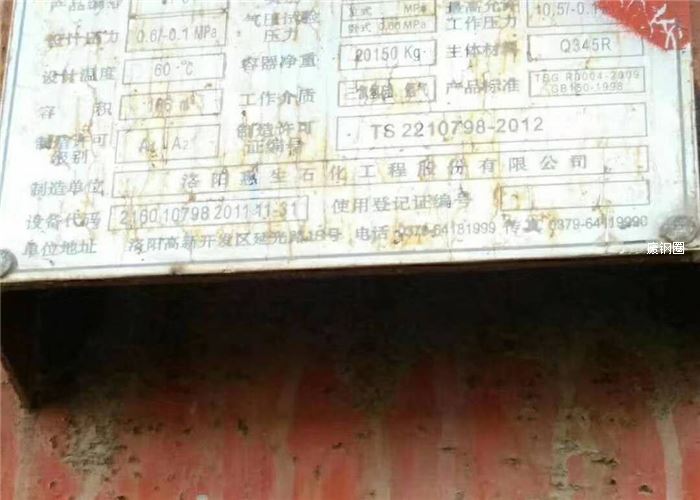 产品编号
气压试验压力 MPa 最高允许工作压力 10.57/-0.1
设计压力 0.6/-0.1 MPa 卧式 MPa
设计温度 60 ℃ 容器净重 20150 Kg 主体材料 Q345R
容 积 m 工作介质 产品标准 TSG R0004-2009 GB150-1998
制造许可级别 A A2 制造许可证编号 TS 2210798-2012
制造单位 洛阳 生石化工程股份有限公司
设备代码 2160 10798 2011 11-31 使用登记证编号
单位地址 洛阳高新开发区延光路18号 电话 0379-64181999 传真 0379-6411999
废钢圈